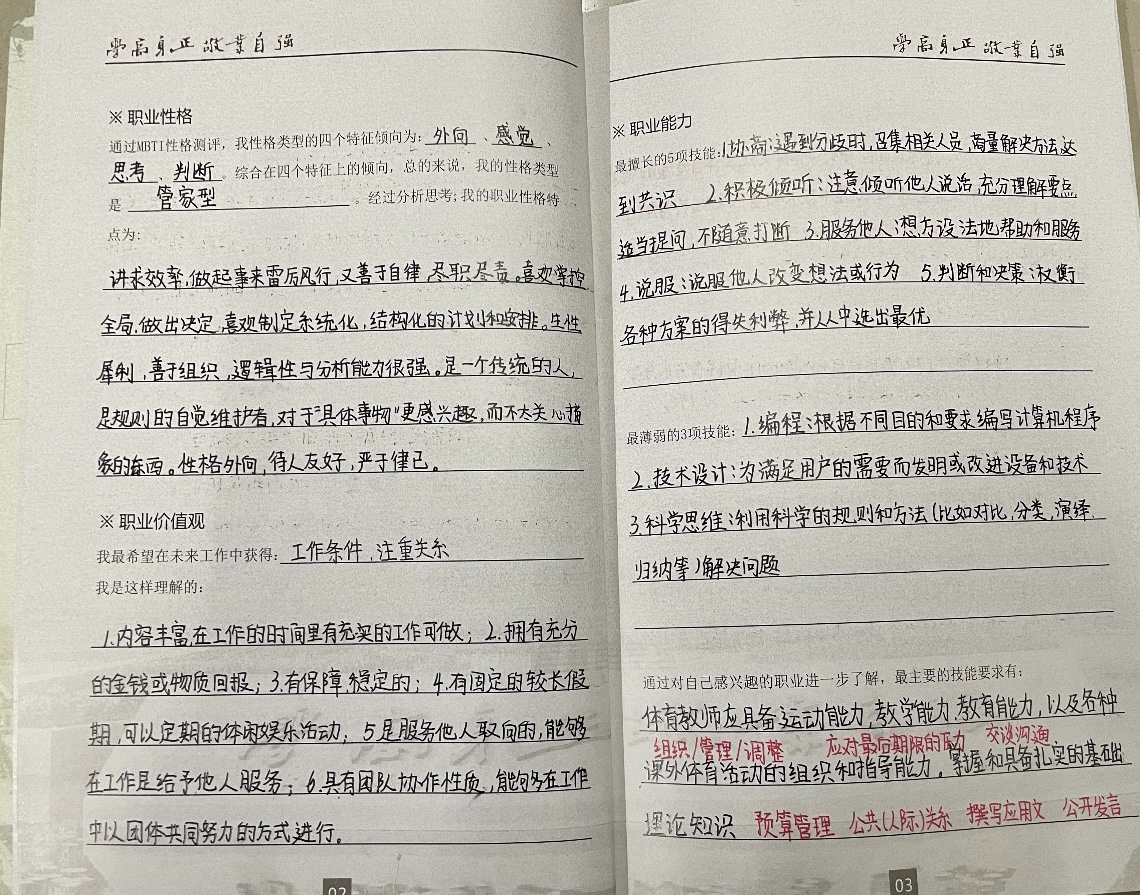 學高身正 敬業自强
※ 职业性格
通过MBTI性格测评，我性格类型的四个特征倾向为：外向 、感觉 、
思考 、判断 。综合在四个特征上的倾向，总的来说，我的性格类型
是 管家型 。经过分析思考；我的职业性格特
点为：
讲求效率，做起事来雷厉风行，又善于自律 尽职尽责。喜欢掌控
全局，做出决定，喜欢制定系统化，结构化的计划和安排。生性
犀利，善于组织，逻辑性与分析能力很强。是一个传统的人，
是规则的自觉维护者，对于"具体事物"更感兴趣，而不太关心抽
象的东西。性格外向，待人友好，严于律已。
※ 职业价值观
我最希望在未来工作中获得：工作条件，注重关系
我是这样理解的：
1.内容丰富，在工作的时间里有充实的工作可做；2.拥有充分
的金钱或物质回报；3.有保障，稳定的；4.有固定的较长假
期，可以定期的休闲娱乐活动；5.是服务他人取向的，能够
在工作是给予他人服务；6.具有团队协作性质，能够多在工作
中以团体共同努力的方式进行。
02
學高身正 敬業自强
※ 职业能力
最擅长的5项技能：1.协商：遇到分歧时，召集相关人员，商量解决方法，达
到共识 2.积极倾听：注意倾听他人说话，充分理解要点
适当提问，不随意打断 3.服务他人：想方设法地帮助和服务
4.说服：说服他人改变想法或行为 5.判断和决策：权衡
各种方案的得失利弊，并从中选出最优
最薄弱的3项技能：1.编程：根据不同目的和要求编写计算机程序
2.技术设计：为满足用户的需要而发明或改进设备和技术
3.科学思维：利用科学的规则和方法（比如对比，分类，演绎，
归纳等）解决问题
通过对自己感兴趣的职业进一步了解，最主要的技能要求有：
体育教师应具备运动能力，教学能力，教育能力，以及各种
组织/管理/调整 应对最后期限的压力 交谈沟通
课外体育活动的组织和指导能力，掌握和具备扎实的基础
理论知识 预算管理 公共(人际)关系 撰写应用文 公开发言
03